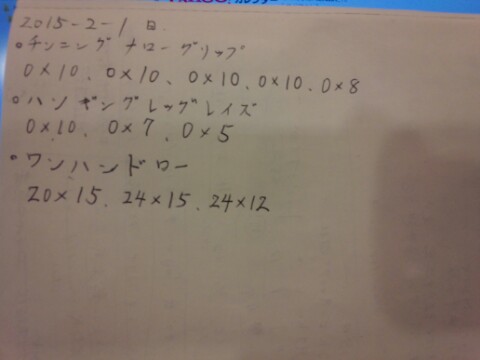 2015-2-1 日
○チンニング ナローグリップ
0×10、0×10、0×10、0×10、0×8
○ハンギングレッグレイズ
0×10、0×7、0×5
○ワンハンドロー
20×15、24×15、24×12